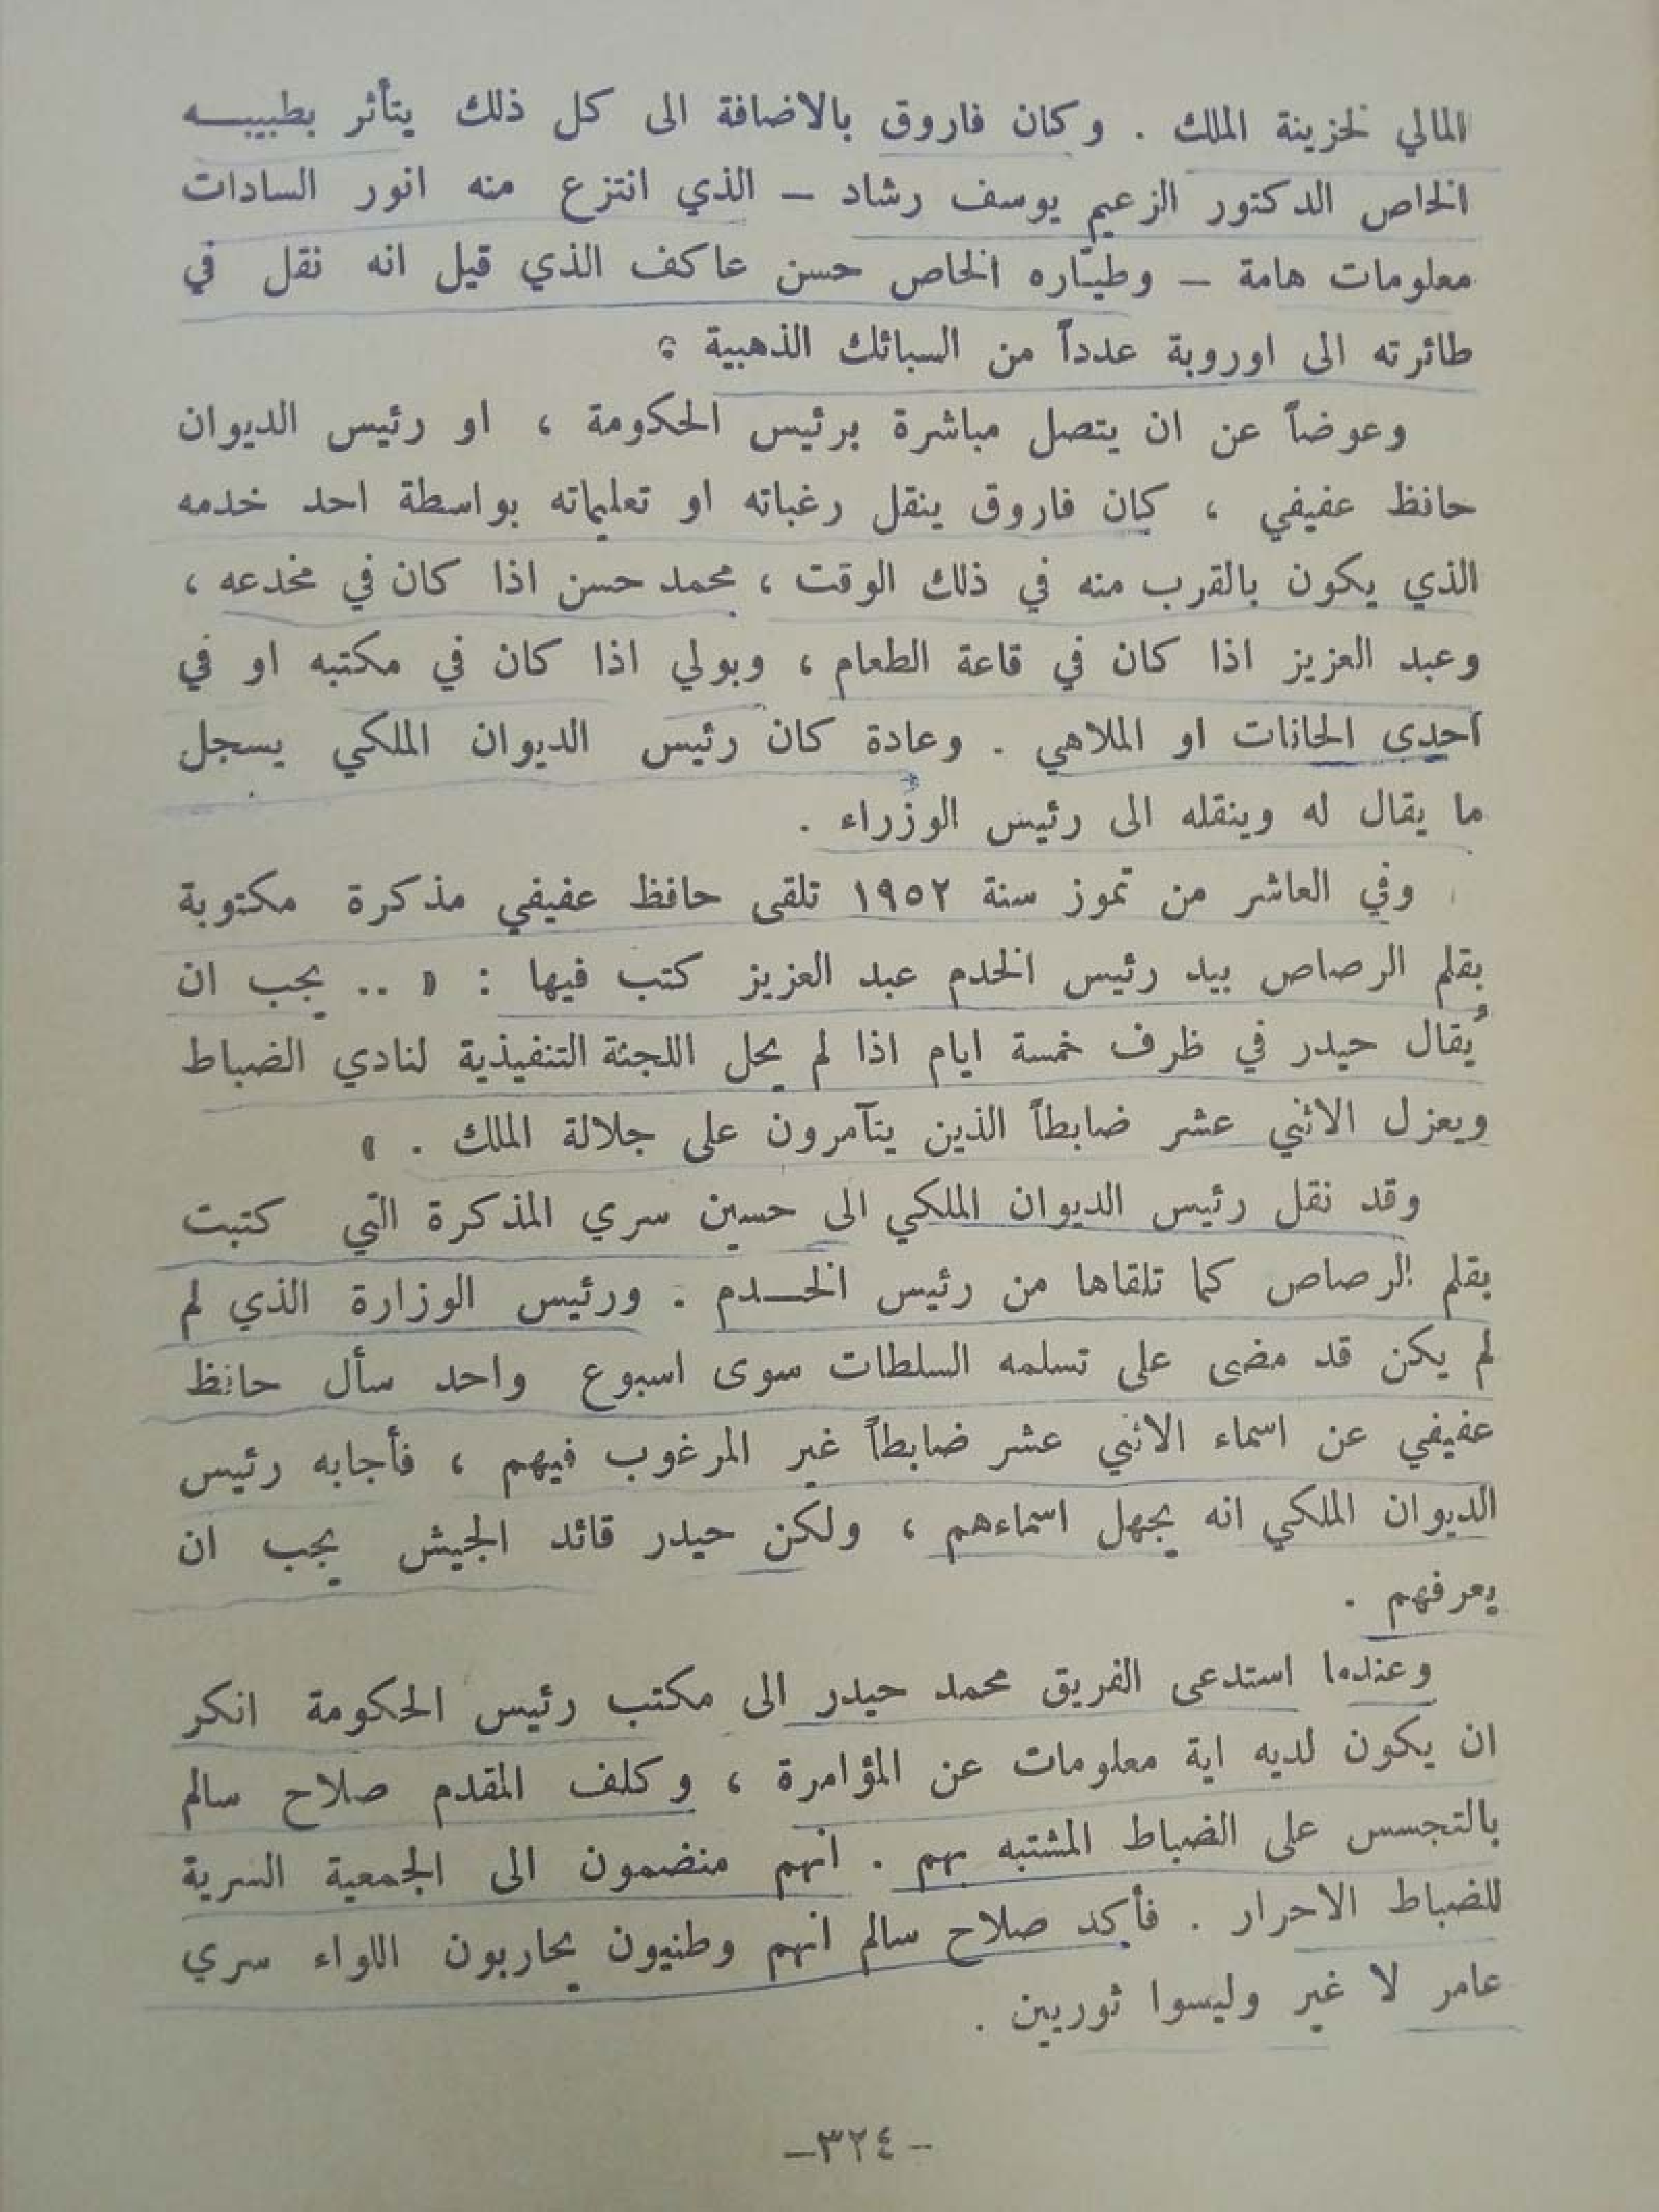 المالي لخزينة الملك . وكان فاروق بالاضافة الى كل ذلك يتأثر بطبيبـــه
الخاص الدكتور الزعيم يوسف رشاد – الذي انتزع منه انور السادات
معلومات هامة – وطيّاره الخاص حسن عاكف الذي قيل انه نقل في
طائرته الى اوروبة عدداً من السبائك الذهبية ؟
وعوضاً عن ان يتصل مباشرة برئيس الحكومة ، او رئيس الديوان
حافظ عفيفي ، كان فاروق ينقل رغباته او تعليماته بواسطة احد خدمه
الذي يكون بالقرب منه في ذلك الوقت ، محمد حسن اذا كان في مخدعه ،
وعبد العزيز اذا كان في قاعة الطعام ، وبولي اذا كان في مكتبه او في
احدى الحانات او الملاهي . وعادة كان رئيس الديوان الملكي يسجل
ما يقال له وينقله الى رئيس الوزراء .
وفي العاشر من تموز سنة ١٩٥٢ تلقى حافظ عفيفي مذكرة مكتوبة
بقلم الرصاص بيد رئيس الخدم عبد العزيز كتب فيها : « .. يجب ان
يُقال حيدر في ظرف خمسة ايام اذا لم يحل اللجنة التنفيذية لنادي الضباط
ويعزل الاثني عشر ضابطاً الذين يتآمرون على جلالة الملك . »
وقد نقل رئيس الديوان الملكي الى حسين سري المذكرة التي كتبت
بقلم الرصاص كما تلقاها من رئيس الخـــدم . ورئيس الوزارة الذي لم
لم يكن قد مضى على تسلمه السلطات سوى اسبوع واحد سأل حافظ
عفيفي عن اسماء الاثني عشر ضابطاً غير المرغوب فيهم ، فأجابه رئيس
الديوان الملكي انه يجهل اسماءهم ، ولكن حيدر قائد الجيش يجب ان
يعرفهم .
وعندما استدعى الفريق محمد حيدر الى مكتب رئيس الحكومة انكر
ان يكون لديه اية معلومات عن المؤامرة ، وكلف المقدم صلاح سالم
بالتجسس على الضباط المشتبه بهم . انهم منضمون الى الجمعية السرية
للضباط الاحرار . فأكد صلاح سالم انهم وطنيون يحاربون اللواء سري
عامر لا غير وليسوا ثوريين .
–٣٢٤–